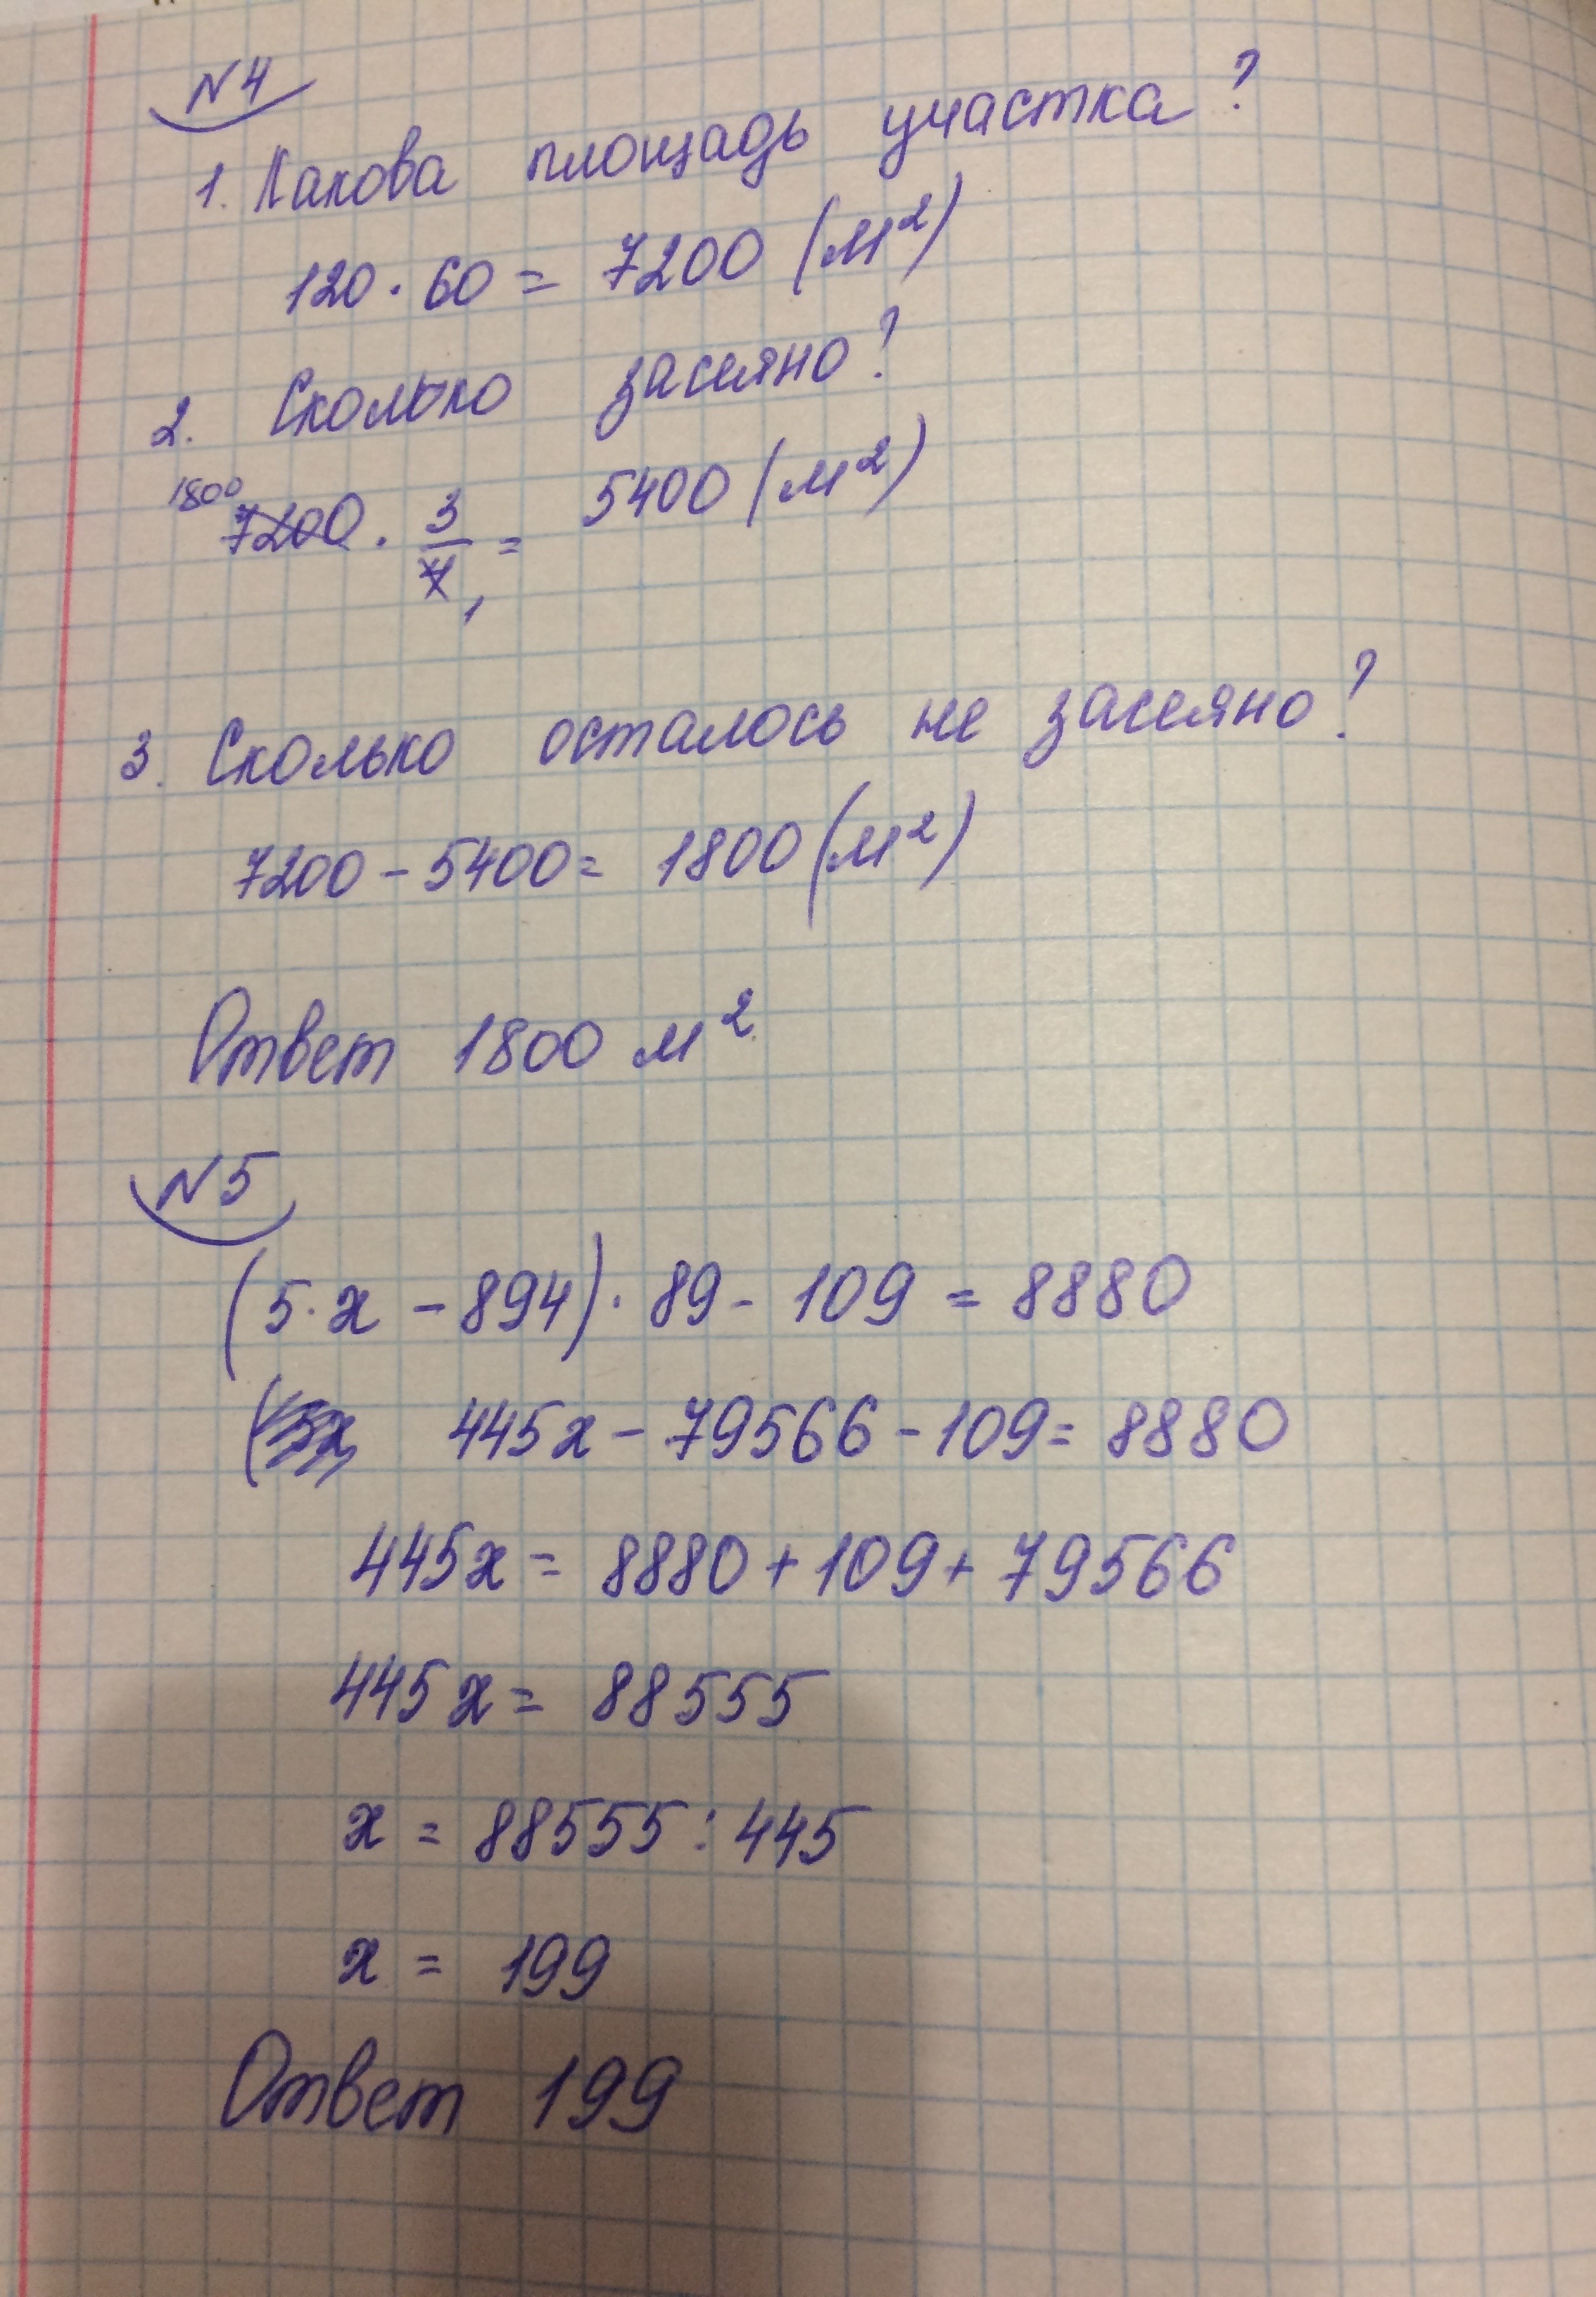 N4
1. Какова площадь участка?
120 · 60 = 7200 (м²)
2. Сколько засеяно?
1800
7200 · 3/4 = 5400 (м²)
1
3. Сколько осталось не засеяно?
7200 - 5400 = 1800 (м²)
Ответ 1800 м²
N5
(5·x - 894) · 89 - 109 = 8880
445x - 79566 - 109 = 8880
445x = 8880 + 109 + 79566
445x = 88555
x = 88555 : 445
x = 199
Ответ 199